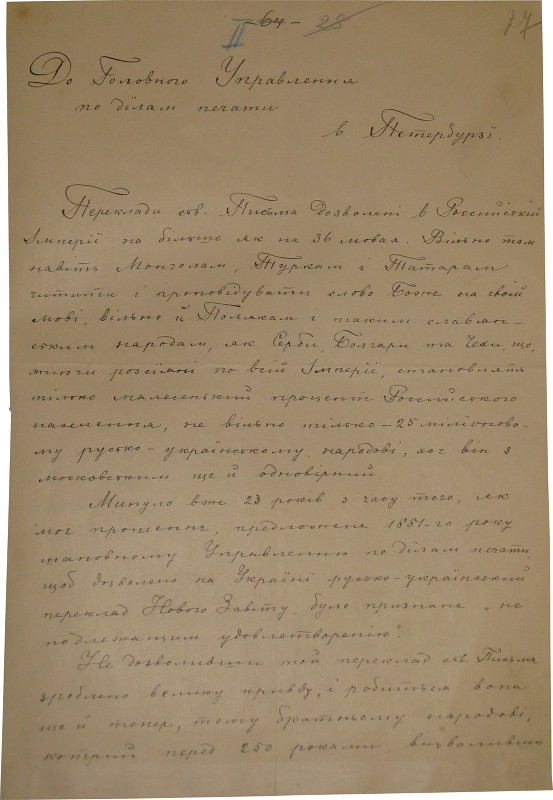 II -64- 28 27
До Головного Управления
по ділам печати
в Петербурзї.
Переклади св. Письма дозволені в Российській
Імперії на більше як на 36 мовах. Вільно там
навіть Монголам, Туркам і Татарам
читати і проповідувати слово Боже на своїй
мові, вільно й Полякам і таким славян-
ським народам, як Серби, Болгари та Чехи, що,
живучи розсіяні по всій Імперії, становлять
тілько малесенький процент Российського
населення, не вільно тілько - 25 міліоново-
му русько-українському народові, хоч він з
московським ще й одновірний
Минуло вже 23 років з часу того, як
моє прошення, предложене 1881-го року
шановному Управлению по ділам печати,
щоб дозволено на Україні русько-український
переклад Нового Завіту, було признане „не
подлежащим удовлетворению".
Не дозволивши той переклад св. Письма
зроблено велику кривду, і робиться вона
ще й тепер, тому братньому народові,
котрий перед 250 роками, визволивши